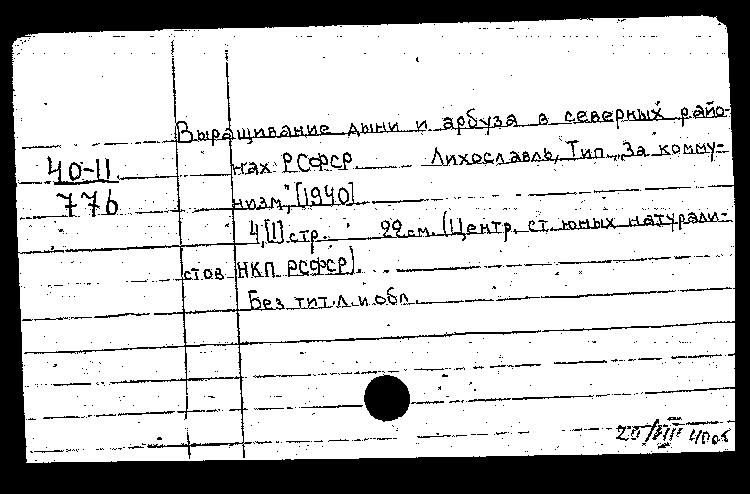 Выращивание дыни и арбуза в северных райо-
40-11
776
нах РСФСР Лихославль, Тип. „За комму-
низм", [1940]
4,[1] стр. 22 см. (Центр. ст. юных натурали-
стов НКП РСФСР).
Без тит. л. и обл.
20/VIII 40